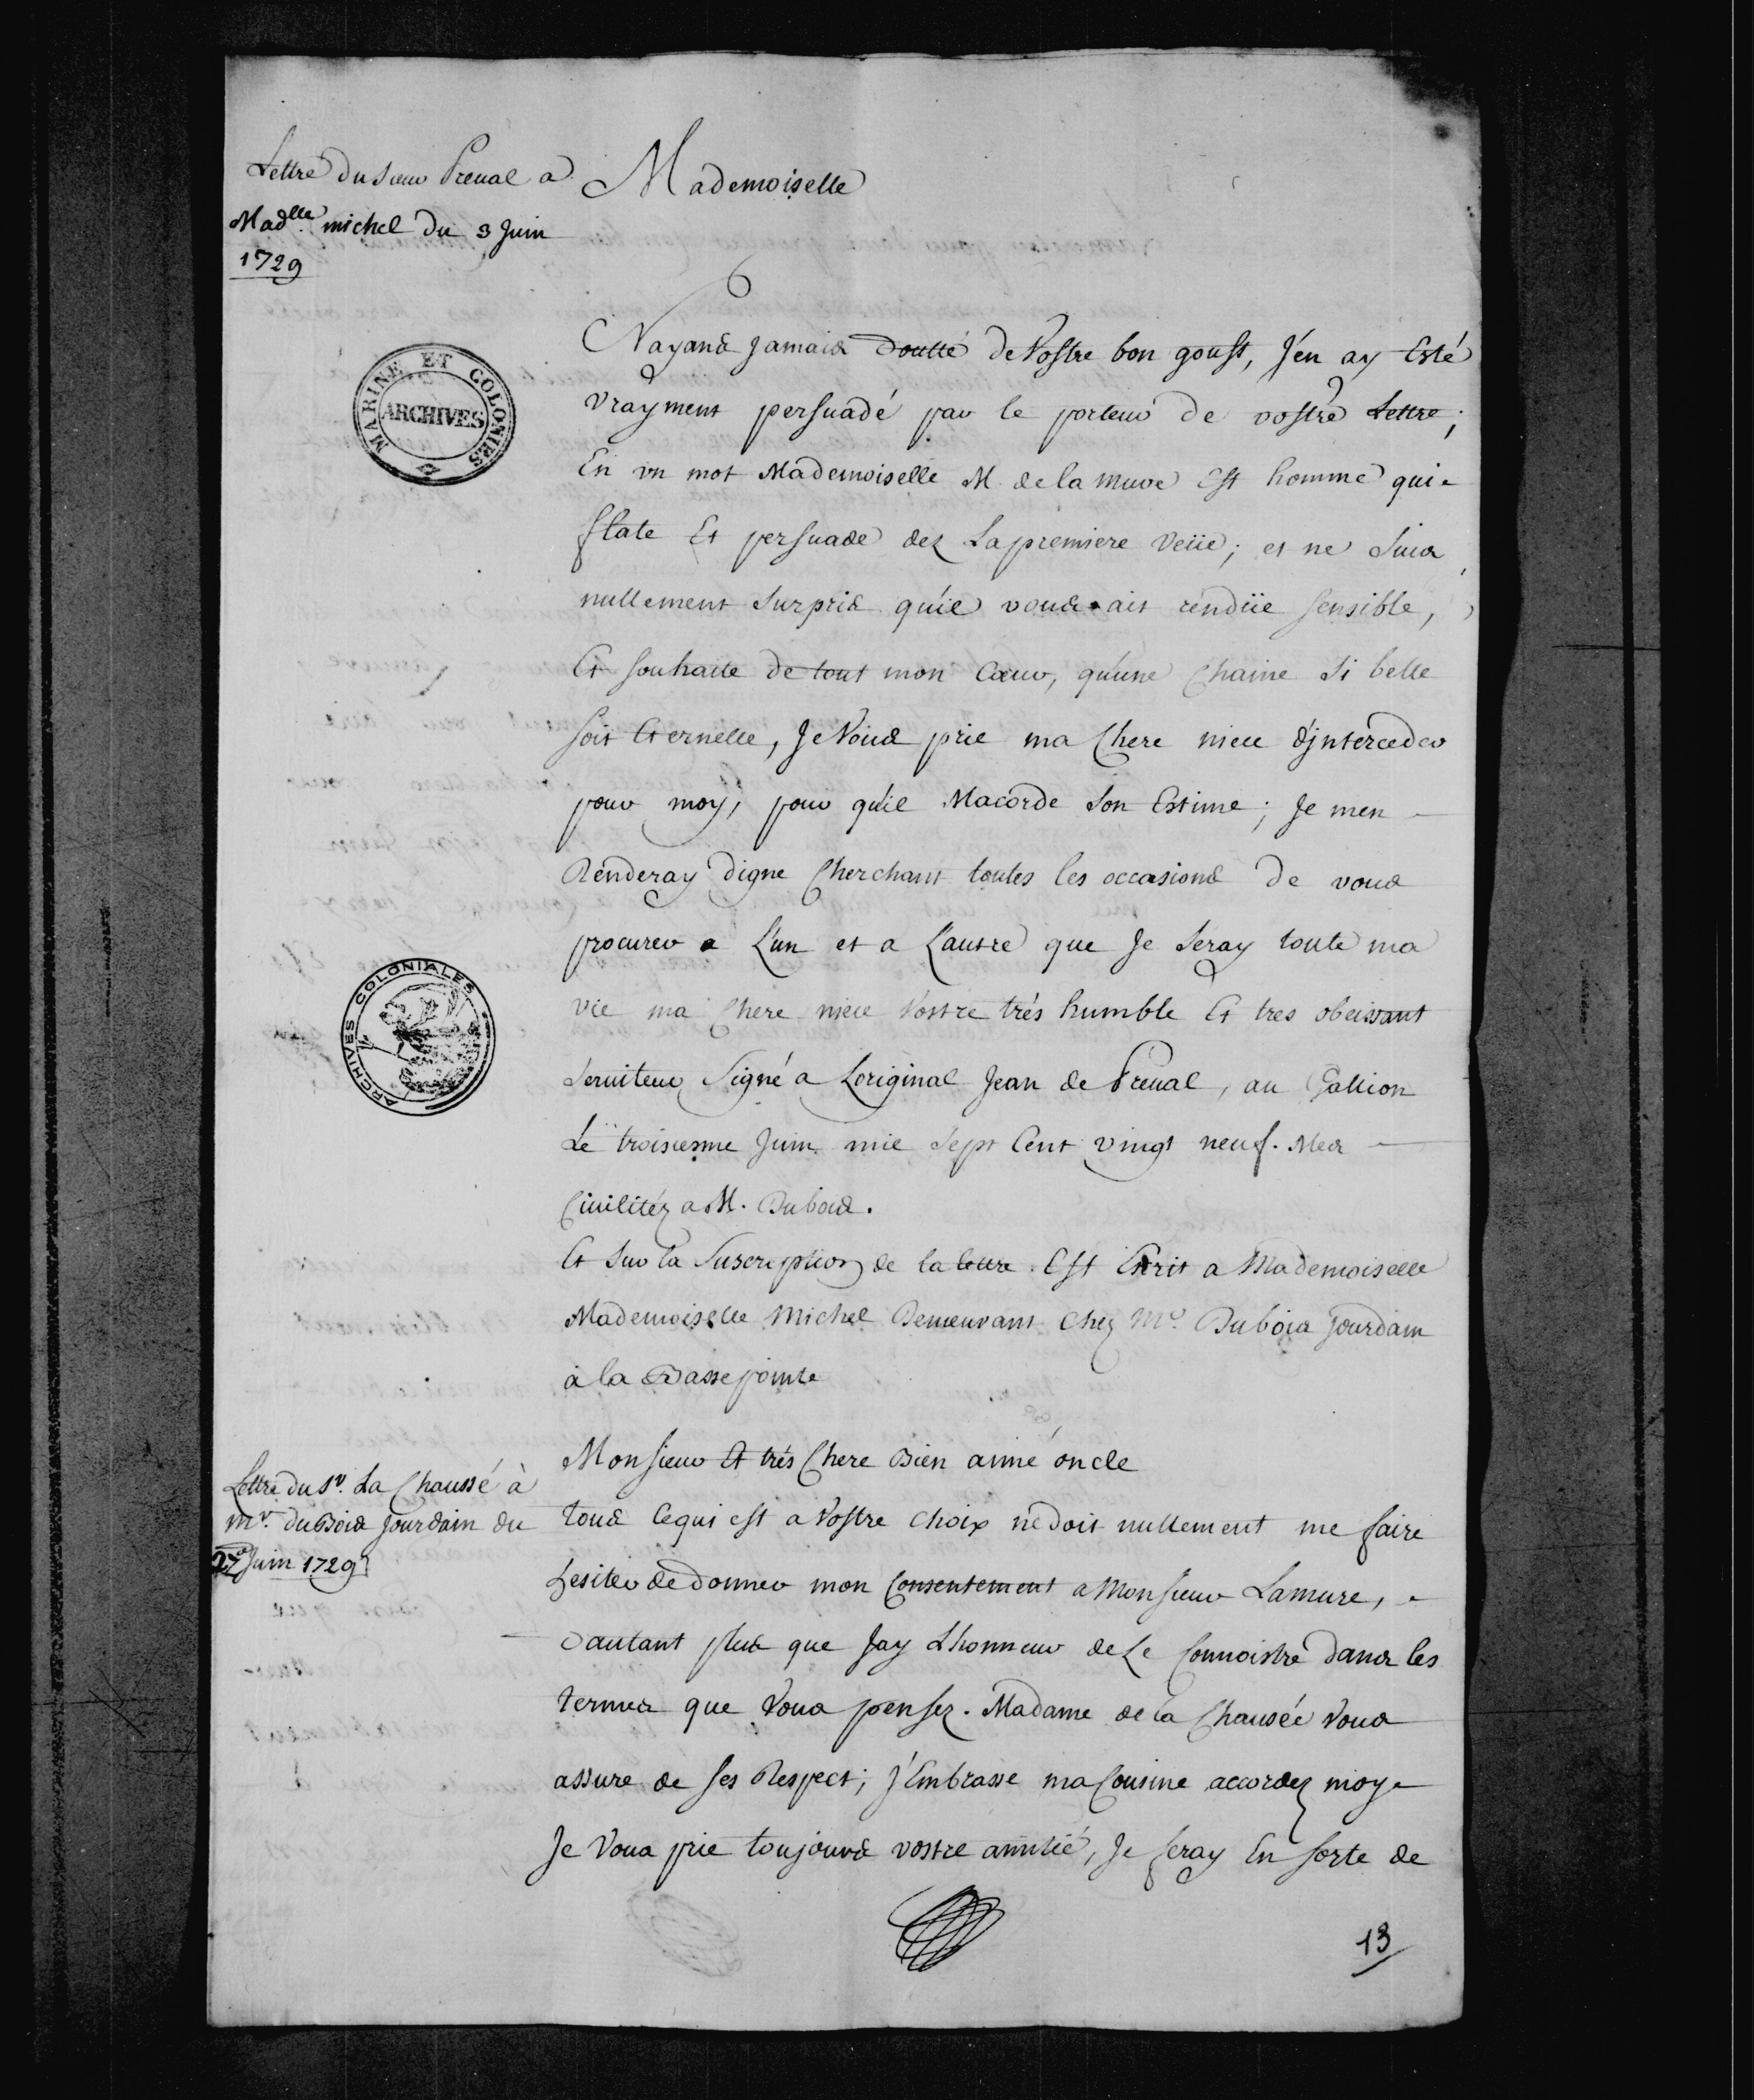 Lettre du sieur Preval a
Madlle michel du 3 Juin
1729
Mademoiselle
Nayans jamais doutté de Vostre bon goust, J'en ay Esté
vrayment persuadé par le porteur de vostre Lettre;
En un mot Mademoiselle M. de la Mure Est homme qui
flate Et persuade dez La premiere veüe; et ne suis
nullement surpris qu'il vous ait rendüe sensible,
Et souhaite de tout mon Cœur, qu'une Chaine si belle
soit Eternelle, Je Vous prie ma Chere niece d'jnterceder
pour moy, pour qu'il Macorde son Estime; Je men
Renderay digne Cherchant toutes les occasions de vous
procurer a L'un et a L'autre que Je seray toute ma
vie ma Chere niece Vostre trés humble Et tres obeissant
serviteur Signé a Loriginal Jean de Preval, au Gallion
Le troisiesme Juin mil sept Cent vingt neuf. Mes
Civilitéz a M. Dubois.
Et sur la Suscription de la lettre Est Ecrit a Mademoiselle
Mademoiselle Michel Demeurant Chez Mr. Dubois Jourdain
à la Basse pointe
Lettre du Sr. La Chaussé à
Mr. Du Bois Jourdain du
27e Juin 1729
Monsieur Et trés Chere Bien aimé oncle
Tous Cequi est a Vostre choix ne doit nullement me faire
hesiter de donner mon Consentement a Monsieur Lamure,
Dautant plus que Jay Lhonneur de Le Connoistre dans les
termes que Vous pensez. Madame de la Chausée Vous
assure de ses Respect; J'Embrasse ma Cousine accordez moy
Je Vous prie toujours vostre amitié, Je feray En sorte de
13
MARINE ET COLONIES
ARCHIVES
ARCHIVES COLONIALES